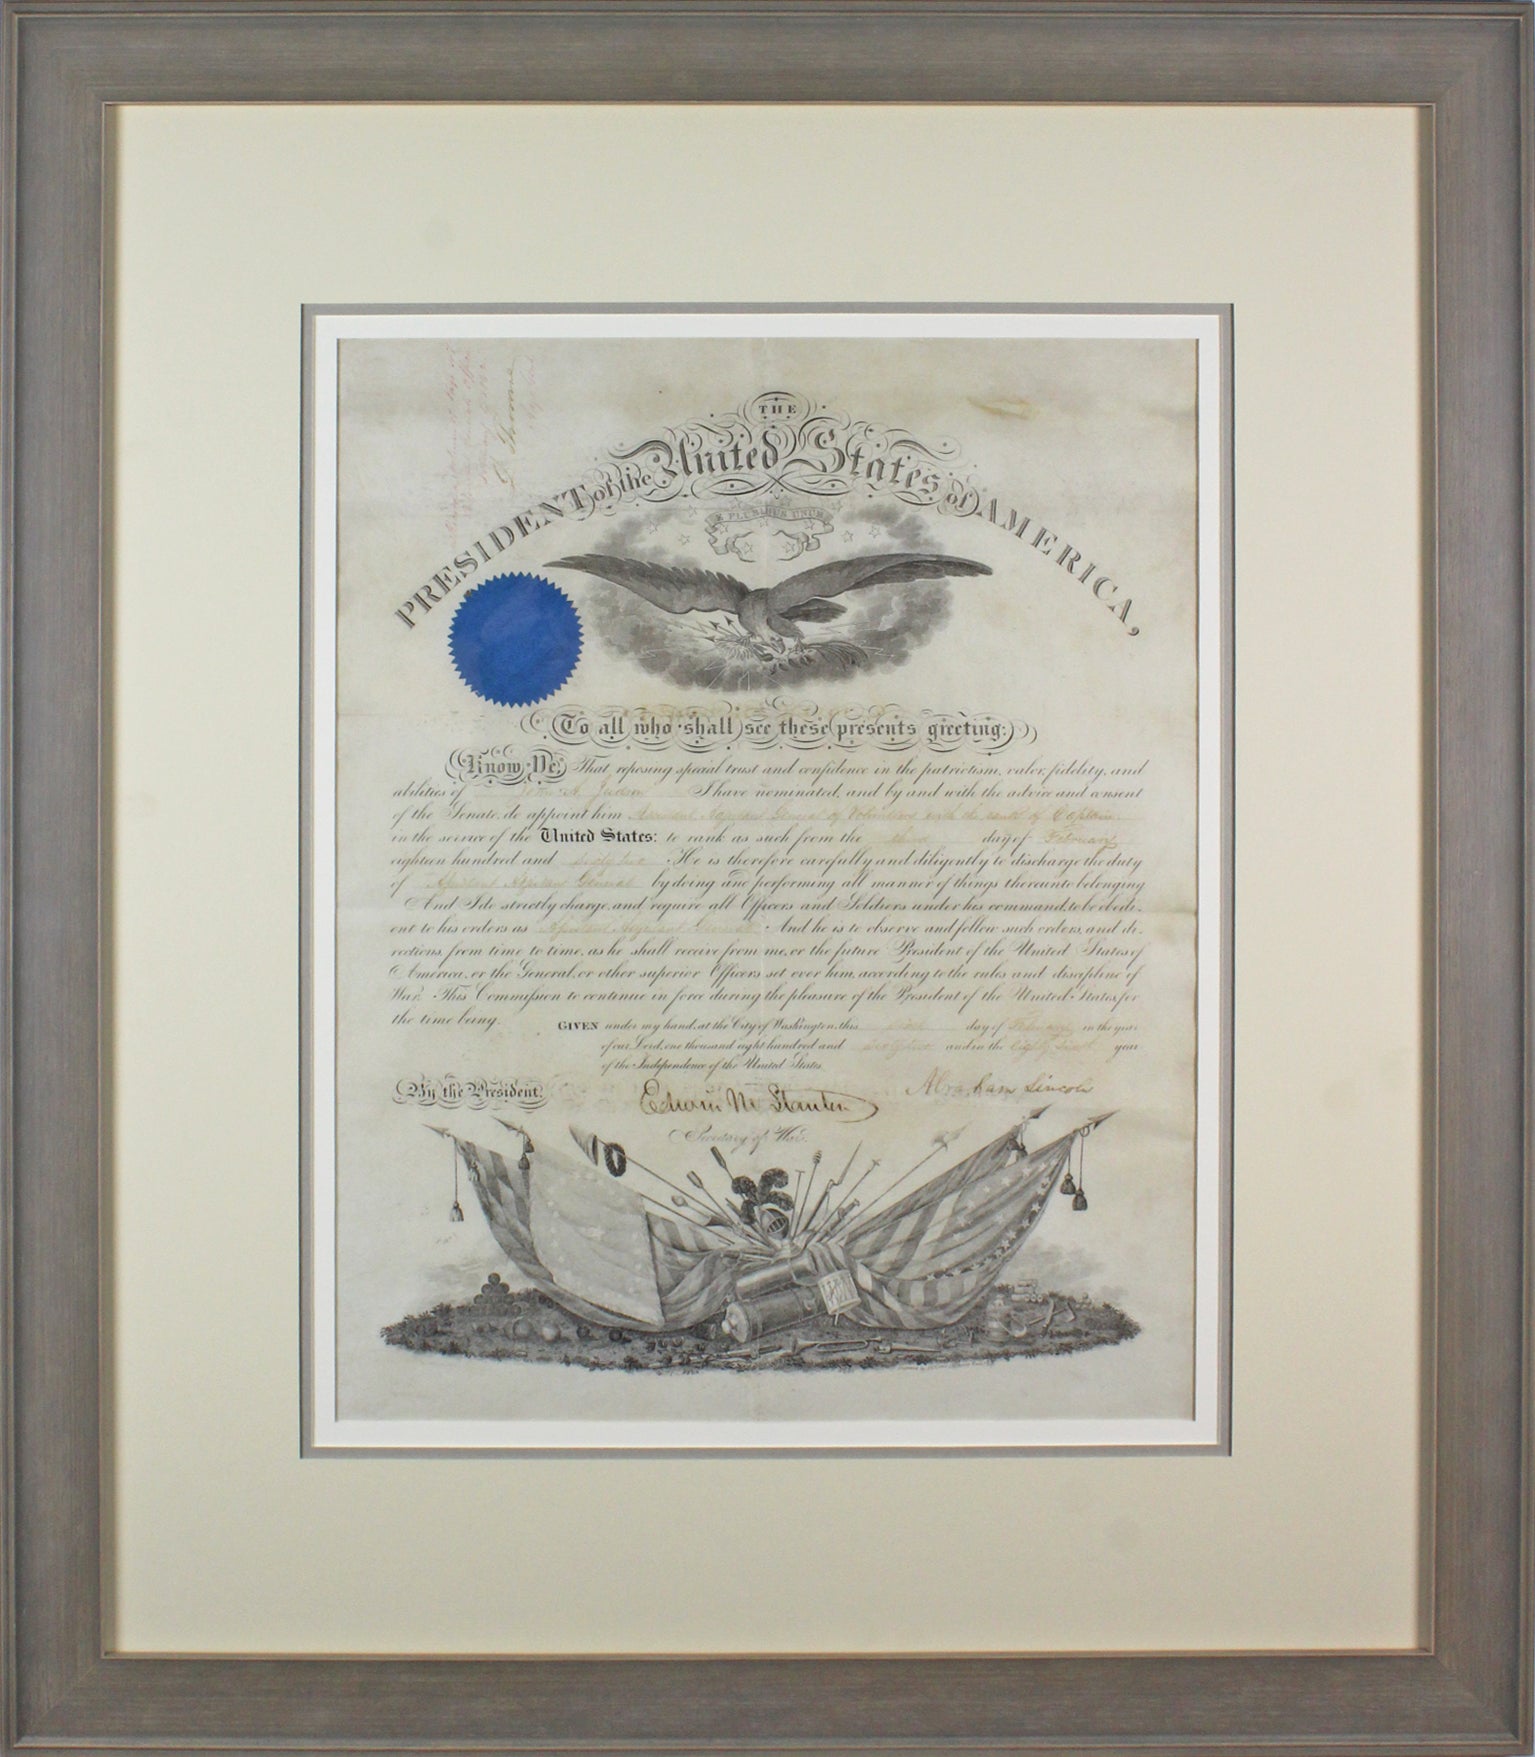 THE
PRESIDENT of the United States of AMERICA,
E PLURIBUS UNUM
L. Thomas
To all who shall see these presents greeting:
Know Ye, That reposing special trust and confidence in the patriotism, valor, fidelity, and
abilities of John A. Judson I have nominated, and by and with the advice and consent
of the Senate, do appoint him Assistant Adjutant General of Volunteers with the rank of Captain
in the service of the United States: to rank as such from the third day of February
eighteen hundred and sixty two. He is therefore carefully and diligently to discharge the duty
of Assistant Adjutant General by doing and performing all manner of things thereunto belonging
And I do strictly charge, and require all Officers and Soldiers under his command, to be obedi-
ent to his orders as Assistant Adjutant General. And he is to observe and follow such orders, and di-
rections, from time to time, as he shall receive from me, or the future President of the United States of
America, or the General, or other superior Officers set over him, according to the rules and discipline of
War. This Commission to continue in force during the pleasure of the President of the United States for
the time being.
GIVEN under my hand, at the City of Washington, this day of February in the year
of our Lord, one thousand eight hundred and sixty two and in the eighty sixth year
of the Independence of the United States.
By the President,
Abraham Lincoln
Edwin M Stanton
Secretary of War.